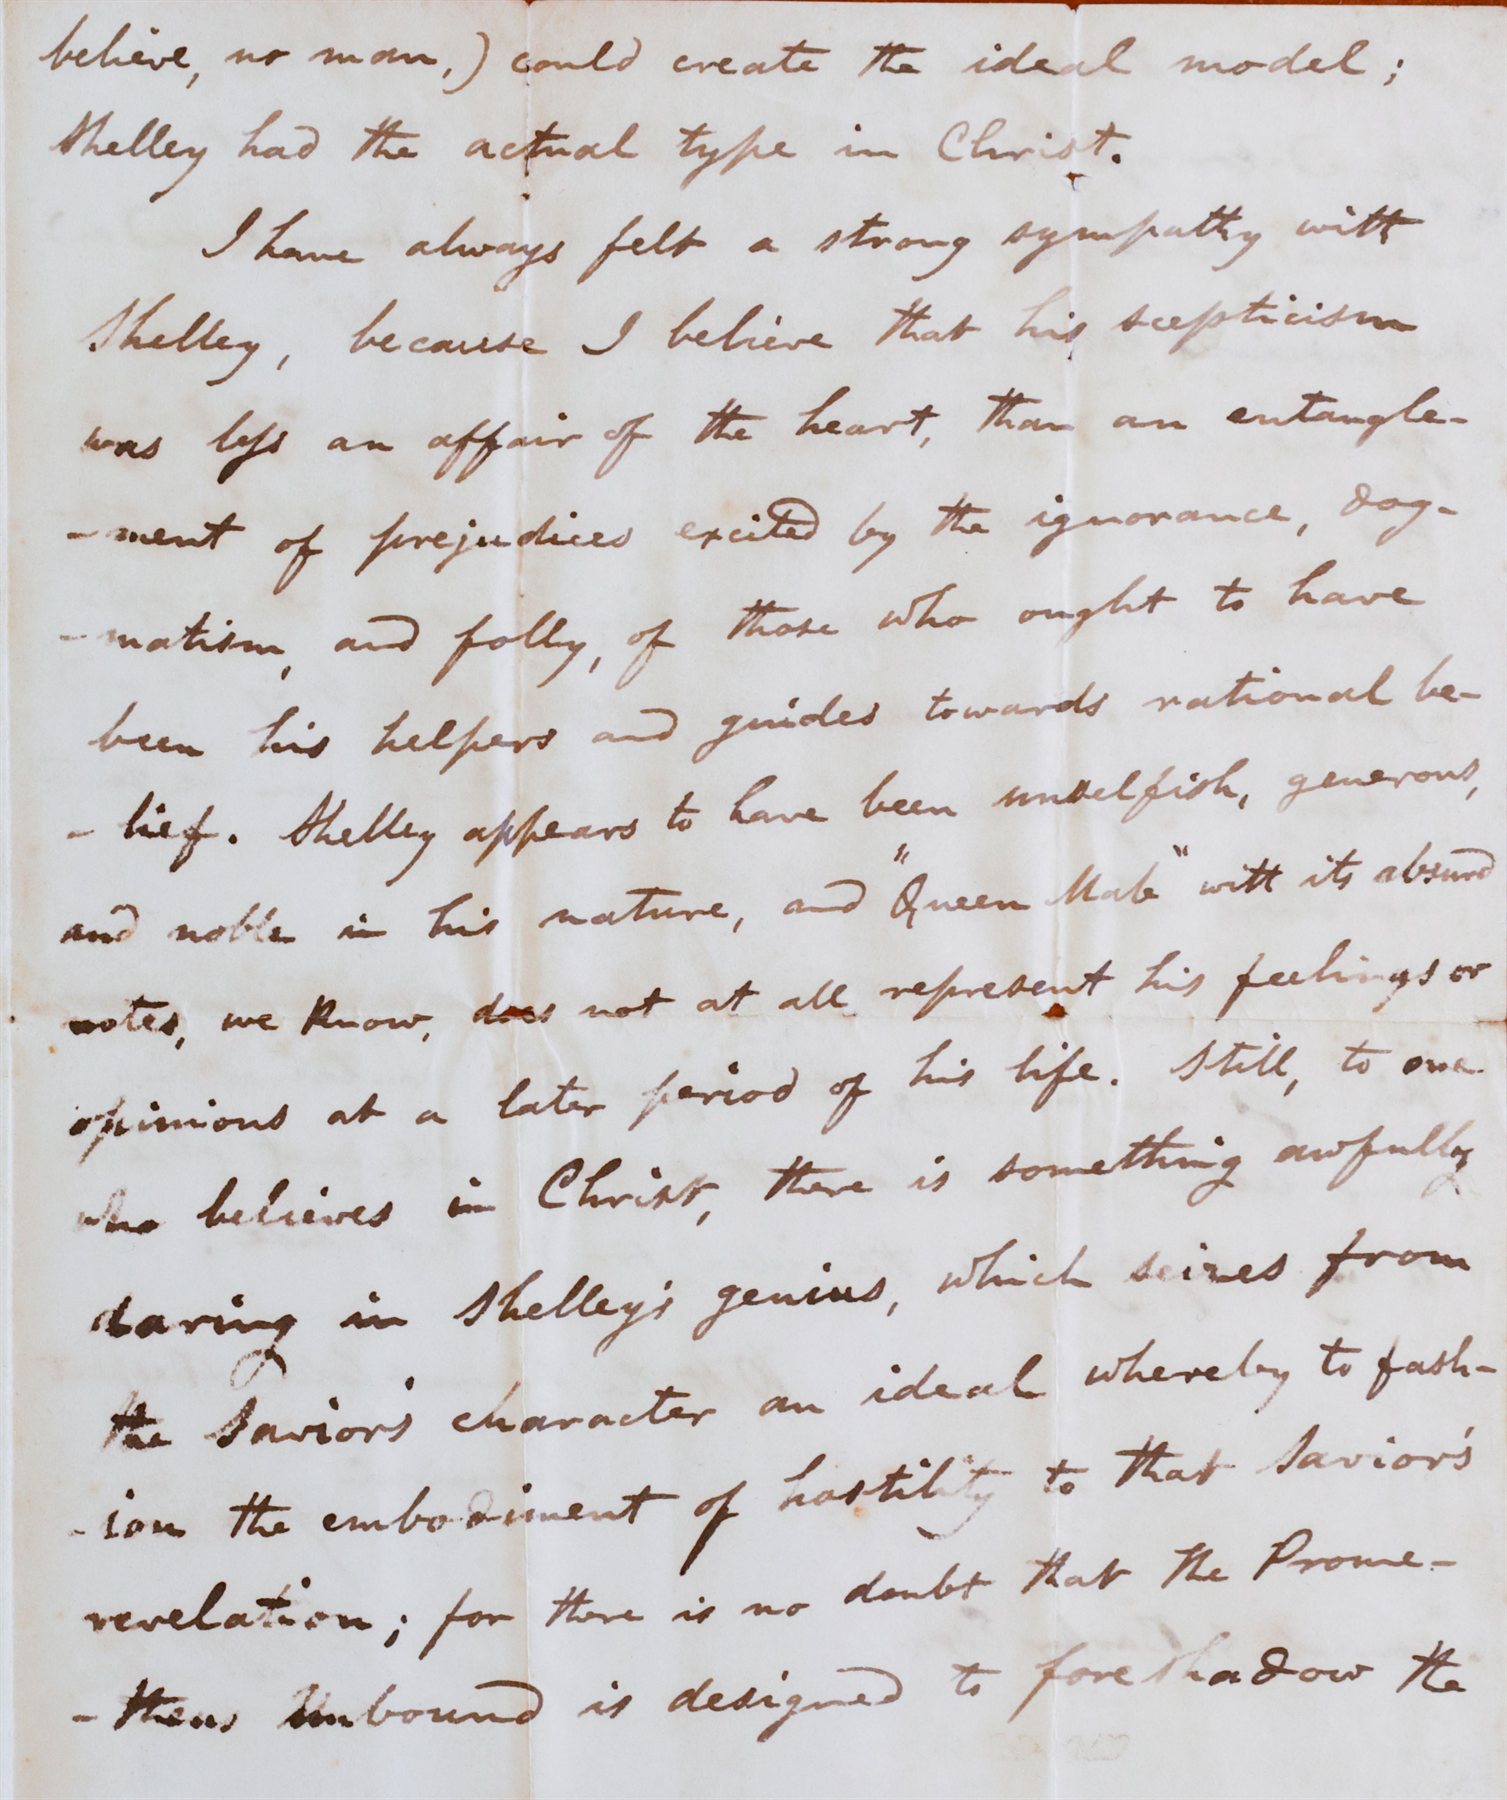 believe, no man,) could create the ideal model;
Shelley had the actual type in Christ.
I have always felt a strong sympathy with
Shelley, because I believe that his scepticism
was less an affair of the heart, than an entangle-
-ment of prejudices excited by the ignorance, dog-
-matism, and folly, of those who ought to have
been his helpers and guides towards rational be-
-lief. Shelley appears to have been unselfish, generous,
and noble in his nature, and "Queen Mab" with its absurd
notes, we know, does not at all represent his feelings or
opinions at a later period of his life. Still, to one
who believes in Christ, there is something awfully
daring in Shelley's genius, which seizes from
the Savior's character an ideal whereby to fash-
-ion the embodiment of hostility to that Savior's
revelation; for there is no doubt that the Prome-
-theus Unbound is designed to foreshadow the